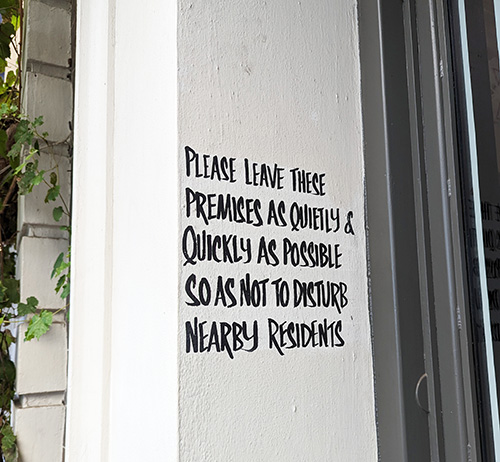 PLEASE LEAVE THESE
PREMISES AS QUIETLY &
QUICKLY AS POSSIBLE
SO AS NOT TO DISTURB
NEARBY RESIDENTS